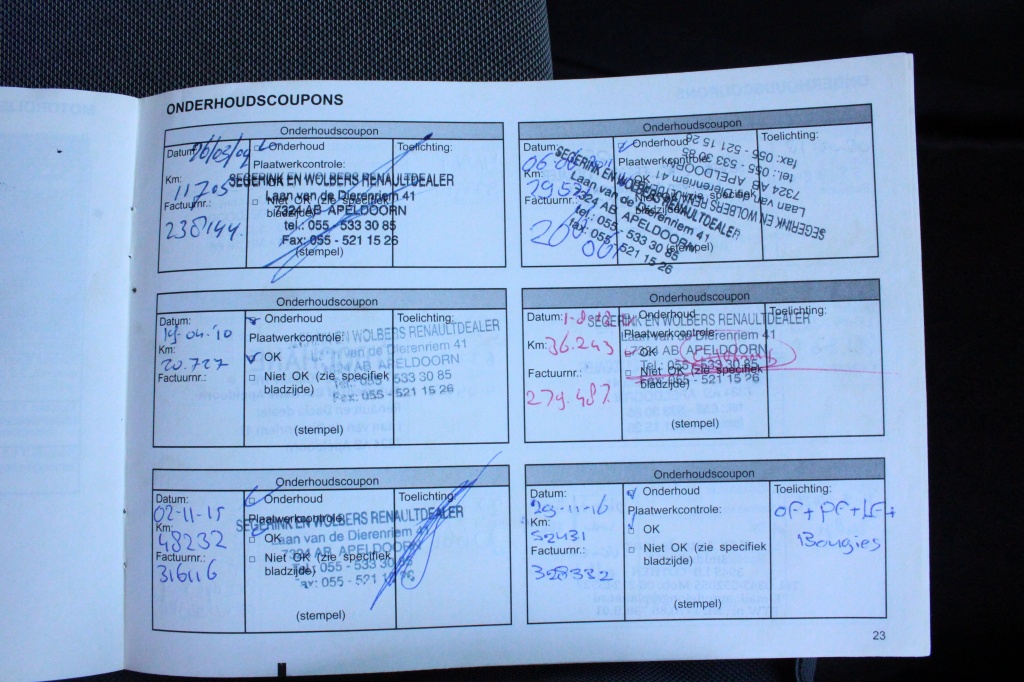 ONDERHOUDSCOUPONS
Onderhoudscoupon
Datum:
Km: 11705
Factuurnr.:
238144.
Onderhoud
Plaatwerkcontrole:
Niet OK (zie specifiek
bladzijde)
(stempel)
Toelichting:
SEGERINK EN WOLBERS RENAULTDEALER
Laan van de Dierenriem 41
7324 AB APELDOORN
tel.: 055 - 533 30 85
Fax: 055 - 521 15 26
Onderhoudscoupon
Datum:
Km:
Factuurnr.:
Onderhoud
Plaatwerkcontrole:
OK
(stempel)
Toelichting:
SEGERINK EN WOLBERS RENAULTDEALER
Laan van de Dierenriem 41
7324 AB APELDOORN
tel.: 055 - 533 30 85
fax: 055 - 521 15 26
SEGERINK EN WOLBERS RENAULTDEALER
Laan van de Dierenriem 41
7324 AB APELDOORN
tel.: 055 - 533 30 85
fax: 055 - 521 15 26
Onderhoudscoupon
Datum:
19-04-'10
Km:
20.727
Factuurnr.:
Onderhoud
Plaatwerkcontrole:
OK
Niet OK (zie specifiek
bladzijde)
(stempel)
Toelichting:
EN WOLBERS RENAULTDEALER
van de Dierenriem 41
7324 AB APELDOORN
533 30 85
Fax: 055 - 521 15 26
Onderhoudscoupon
Datum:
Km: 36.243
Factuurnr.:
279.487
Onderhoud
Plaatwerkcontrole:
OK
Niet OK (zie specifiek
bladzijde)
(stempel)
Toelichting:
SEGERINK EN WOLBERS RENAULTDEALER
Laan van de Dierenriem 41
7324 AB APELDOORN
Tel.: 055 - 533 30 85
Fax: 055 - 521 15 26
Onderhoudscoupon
Datum:
02-11-15
Km:
48232
Factuurnr.:
316116
Onderhoud
Plaatwerkcontrole:
OK
Niet OK (zie specifiek
bladzijde)
(stempel)
Toelichting:
SEGERINK EN WOLBERS RENAULTDEALER
Laan van de Dierenriem 41
7324 AB APELDOORN
Tel.: 055 - 533 30 85
Fax: 055 - 521 15 26
Onderhoudscoupon
Datum:
29-11-16
Km:
52431
Factuurnr.:
328332
Onderhoud
Plaatwerkcontrole:
OK
Niet OK (zie specifiek
bladzijde)
(stempel)
Toelichting:
OF + PF + LF +
Bougies
23